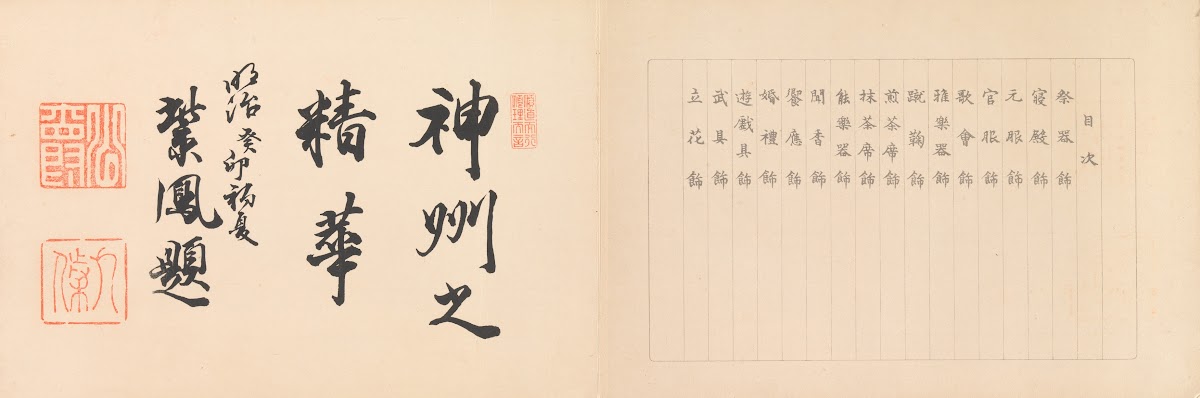 目次
祭器飾
寢殿飾
元服飾
官服飾
歌會飾
雅樂器飾
蹴鞠飾
煎茶席飾
抹茶席飾
能樂器飾
聞香飾
饗應飾
婚禮飾
遊戲具飾
武具飾
立花飾
神州之
精華
明治癸卯初夏
鳳題
九條